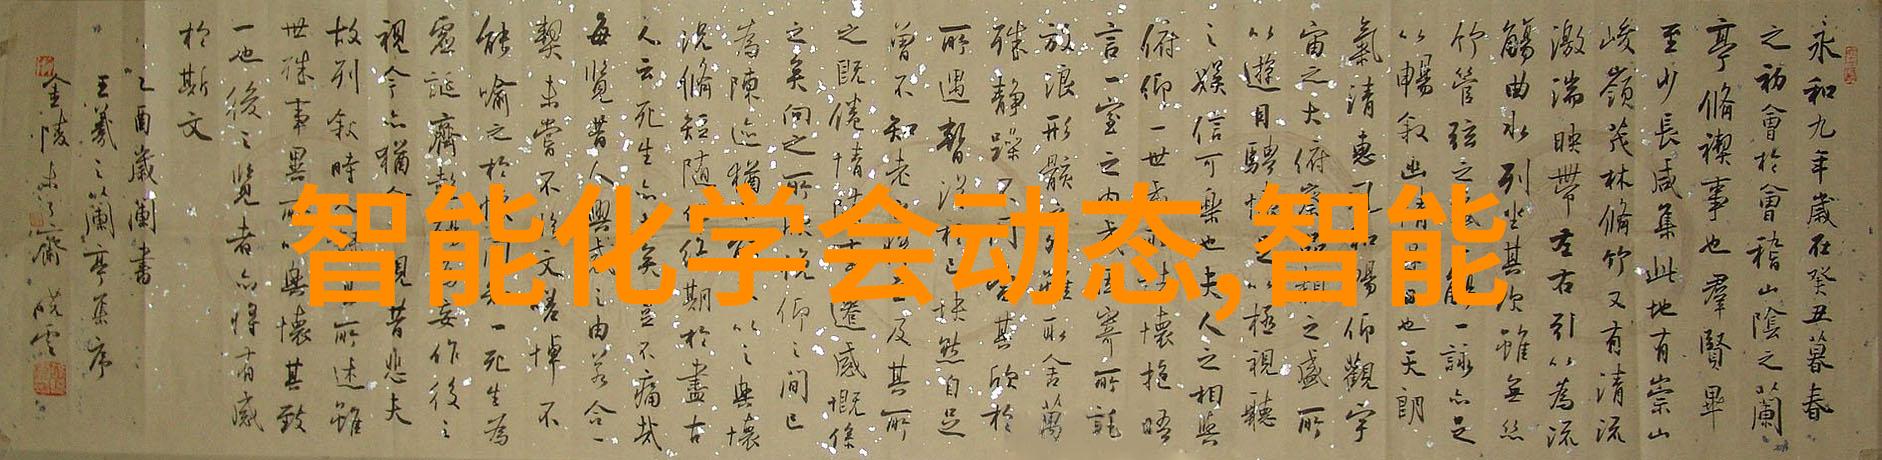 智能化学会动态,智能
永和九年歲在癸丑暮春
之初會於會稽山陰之蘭
亭脩禊事也羣賢畢
至少長咸集此地有崇山
峻嶺茂林脩竹又有清流
激湍映帶左右引以為流
觴曲水列坐其次雖無絲
竹管弦之盛一詠亦足
以暢叙幽情是日也天朗
氣清惠風和暢仰觀宇
宙之大俯察品類之盛所
以遊目騁懷足以極視聽
之娛信可樂也夫人之相與
俯仰一世或取諸懷抱晤
言一室之內或因寄所託
放浪形骸之外雖取舍萬
殊靜躁不同當其欣於
所遇暫得於己快然自足
曾不知老之將至及其所
之既倦情隨事遷感慨係
之矣向之所欣俛仰之間已
為陳迹猶不能不以之興懷
況脩短隨化終期於盡古
人云死生亦大矣豈不痛哉
每覽昔人興感之由若合一
契未嘗不臨文嗟悼不
能喻之於懷固知一死生為
虛誕齊彭殤為妄作後之
視今亦猶今之視昔悲夫
故列叙時人錄其所述雖
世殊事異所以興懷其致
一也後之覽者亦將有感
於斯文
乙酉歲蘭書
王羲之蘭亭集序
金陵齋